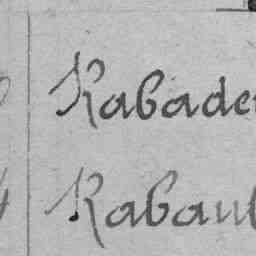 Rabade
Rabau